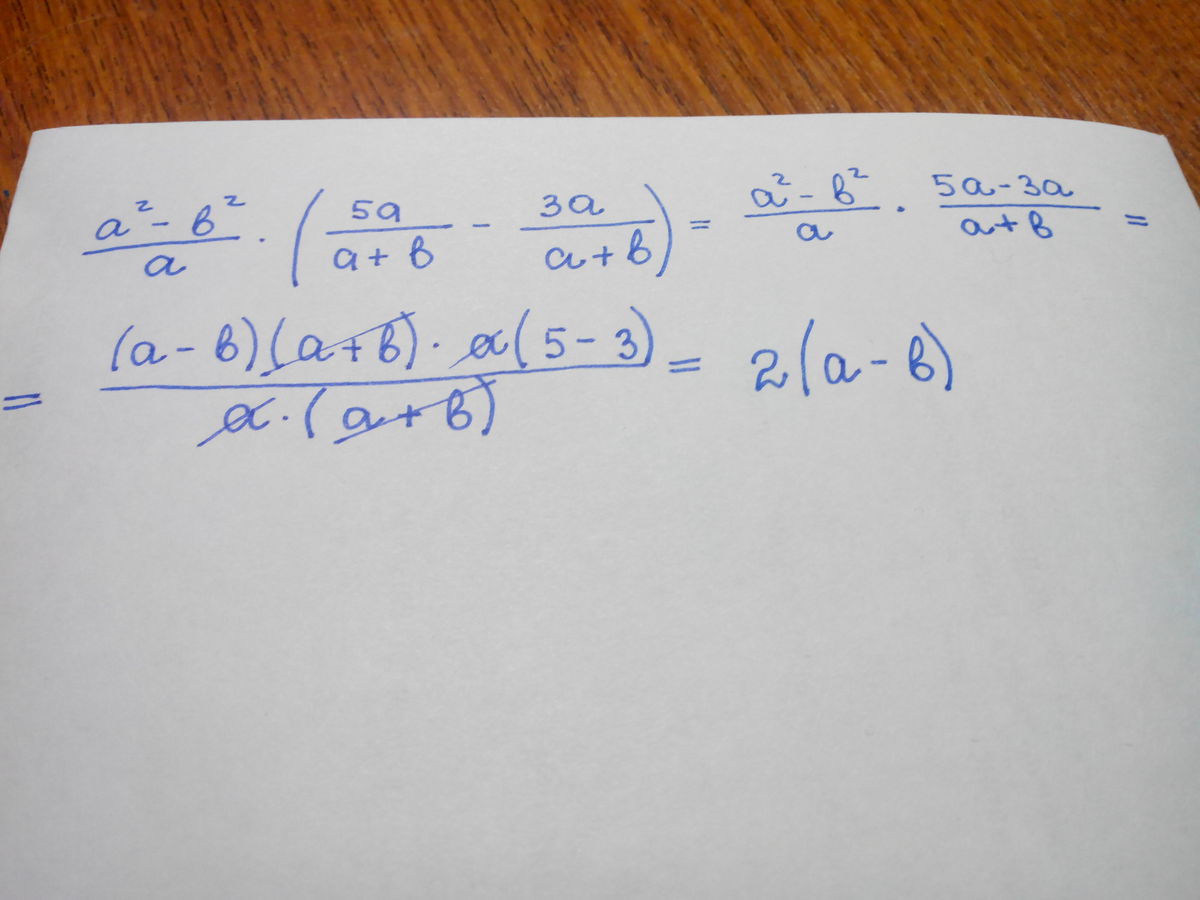 (a² - b²)/a · (5a/(a + b) - 3a/(a + b)) = (a² - b²)/a · (5a - 3a)/(a + b) =
= ((a - b)(a + b) · a(5 - 3))/(a · (a + b)) = 2(a - b)